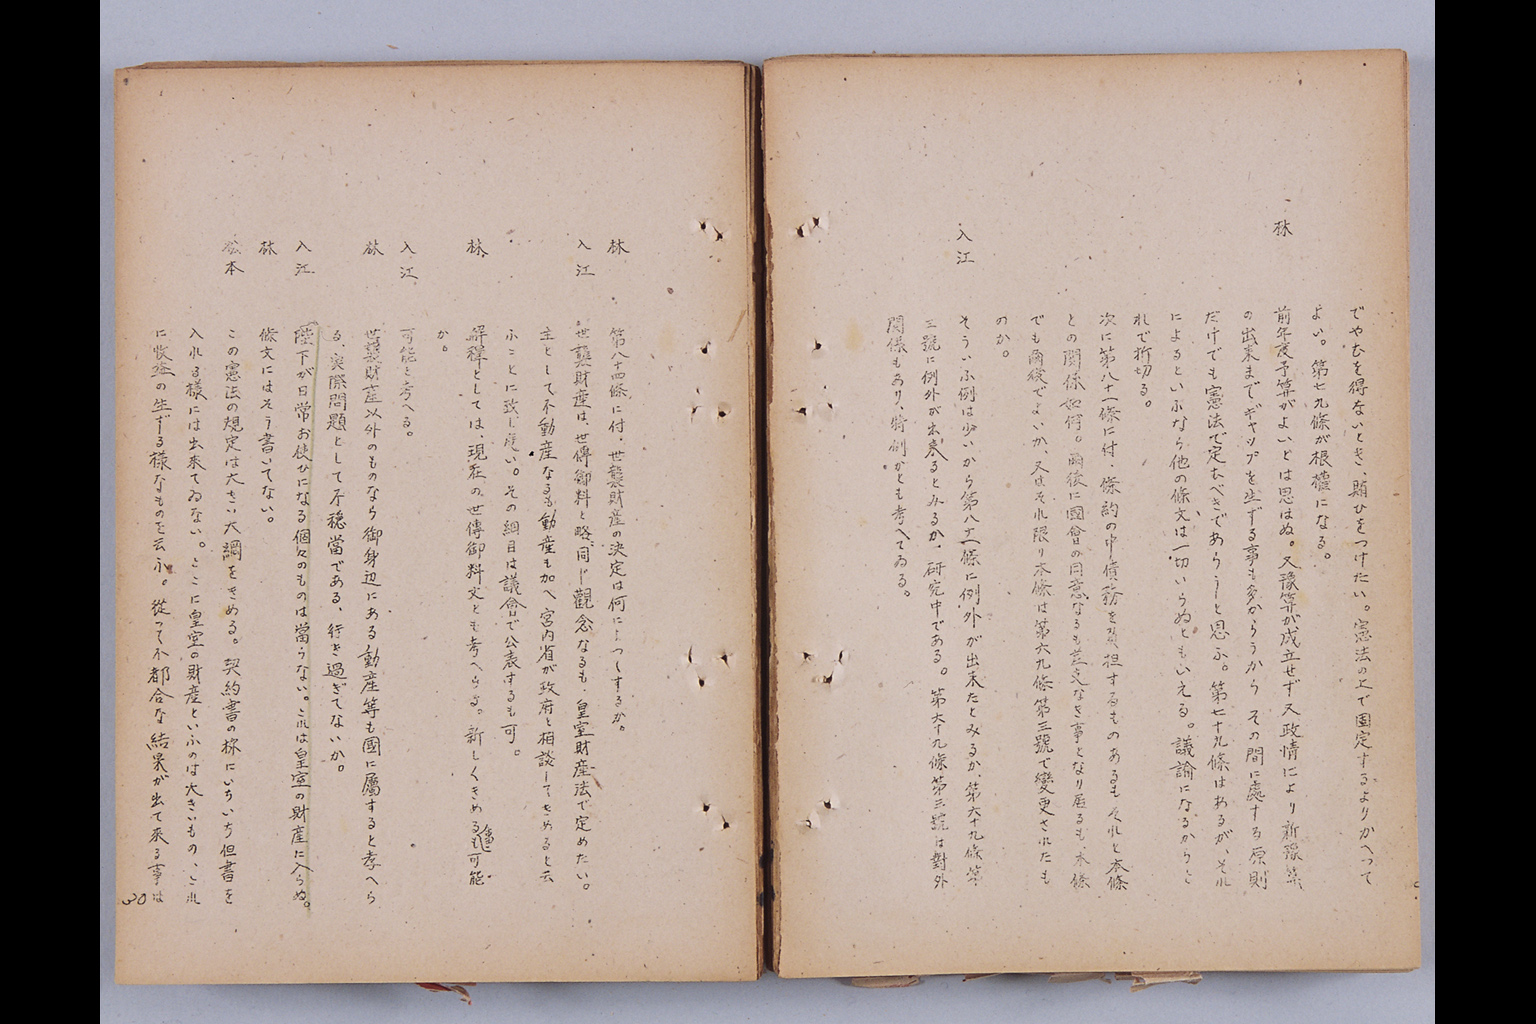 でやむを得ないとき、賄ひをつけたい。憲法の上で固定するよりかへって
よい。第七九條が根櫨になる。
林
前年度予算がよいとは思はぬ。又豫算が成立せず又政情により新豫算
の出来までギャップを生ずる事も多からうから その間に處する原則
だけでも憲法で定むべきであらうと思ふ。第七十九條はあるが、それ
によるといふなら他の條文は一切いらぬともいえる。議論になるからこ
れで折切る。
次に第八十一條に付、條約の中債務を負担するものあるもそれと本條
との関係如何。爾後に國會の同意なるも差支なき事となり居るも、本條
でも爾後でよいか、又はそれ限り本條は第六九條第三號で変更されたも
のか。
入江
そういふ例は少いから第八十一條に例外が出来たとみるか、第六十九條第
三號に例外が出来るとみるか、研究中である。第六十九條第三號は對外
関係もあり、特例かとも考へてゐる。
林
第八十四條に付、世襲財産の決定は何によつてするか。
入江
世襲財産は、世傳御料と略、同じ觀念なるも、皇室財産法で定めたい。
主として不動産なるも動産も加へ宮内省が政府と相談してきめると云
ふことに致し度い。その細目は議會で公表するも可。
林
解釋としては、現在の世傳御料丈とも考へらる。新しくきめるも可能
か。
入江
可能と考へる。
林
世襲財産以外のものなら御身辺にある動産等も國に屬すると考へら
る、実際問題として不穏當である、行き過ぎてないか。
入江
陛下が日常お使ひになる個々のものは當らない。これは皇室の財産に入らぬ。
林
條文にはそう書いてない。
松本
この憲法の規定は大きい大綱をきめる。契約書の様にいちいち但書を
入れる様には出来てゐない。ここに皇室の財産といふのは大きいもの、これ
に收益の生ずる様なものを云ふ。從つて不都合な結果が出て来る事は
30